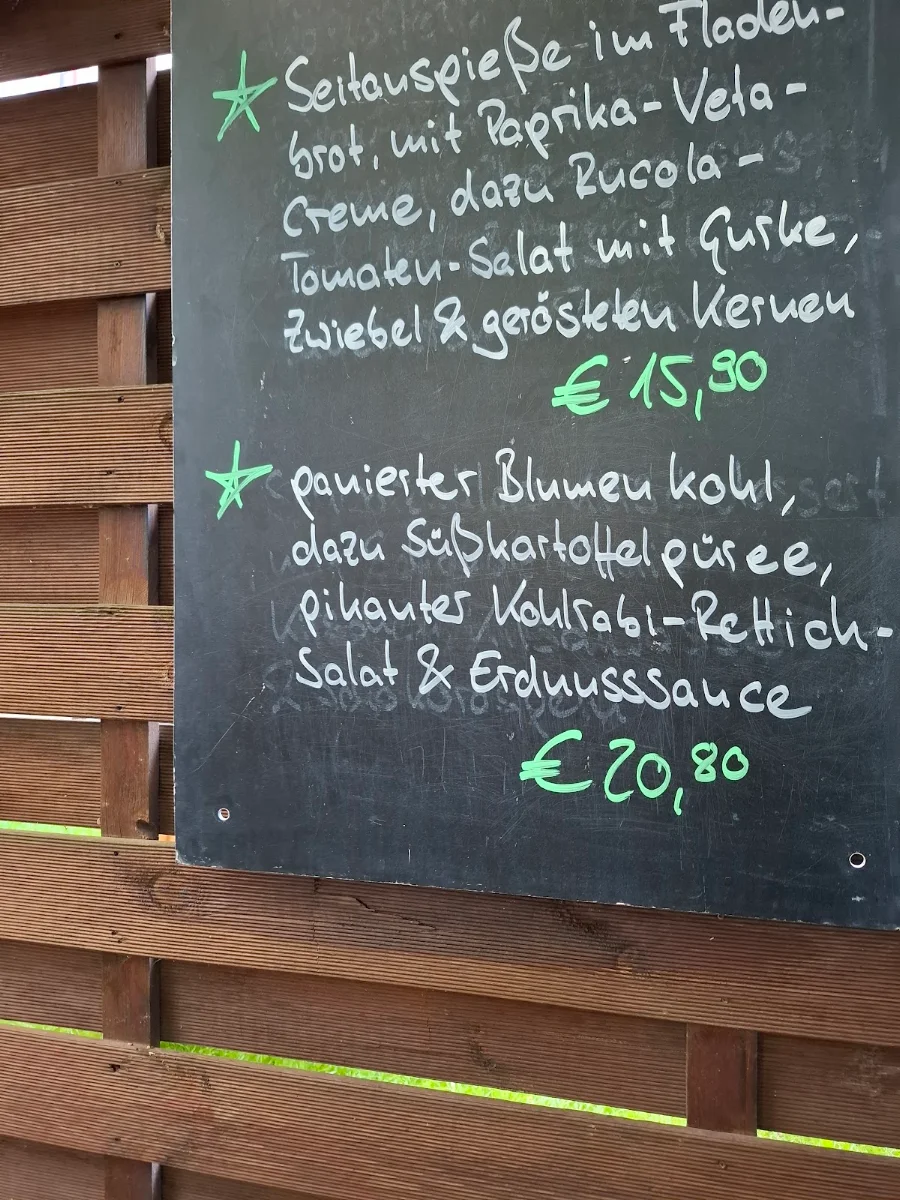 Seitanspieße im Fladen-
brot, mit Paprika-Veta-
Creme, dazu Rucola-
Tomaten-Salat mit Gurke,
Zwiebel & gerösteten Kernen
€ 15,90
panierter Blumenkohl,
dazu Süßkartoffelpüree,
pikanter Kohlrabi-Rettich-
Salat & Erdnusssauce
€ 20,80